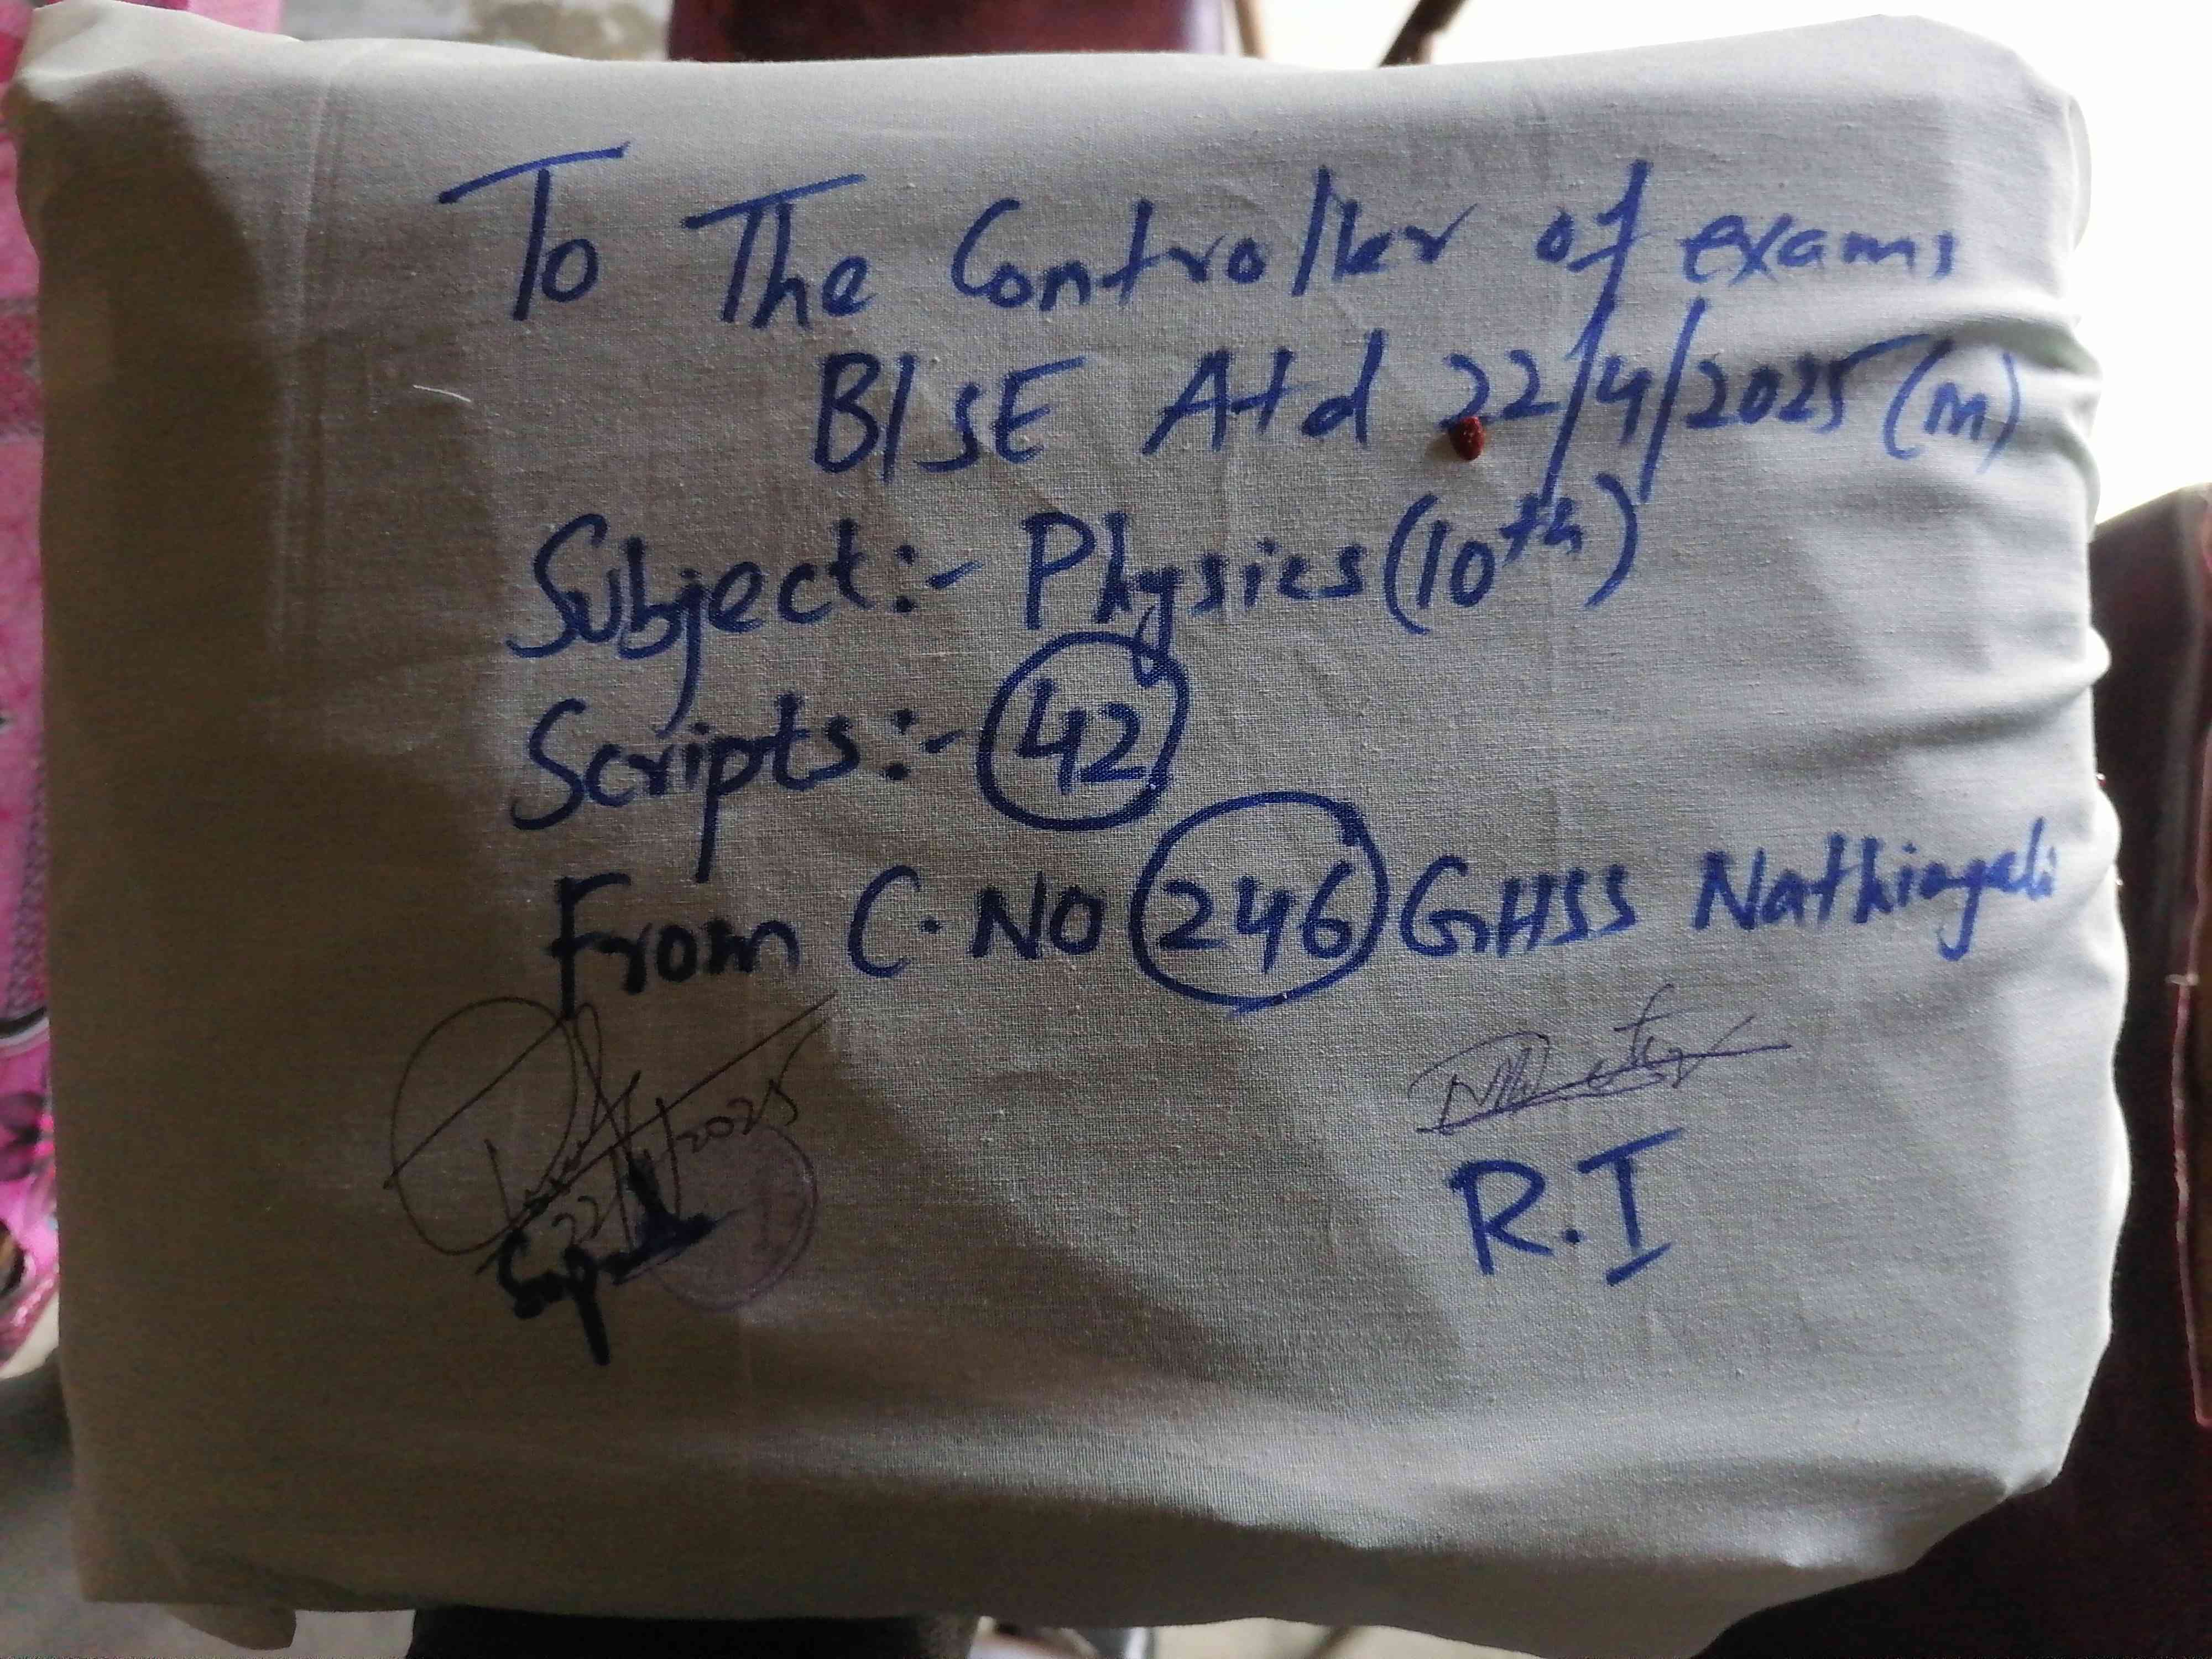 To The Controller of exams
BISE Atd 22/4/2025 (m)
Subject:- Physics (10th)
Scripts:- 42
From C.NO 246 GHSS Nathiagali
22/4/2025
Supdt
R.I